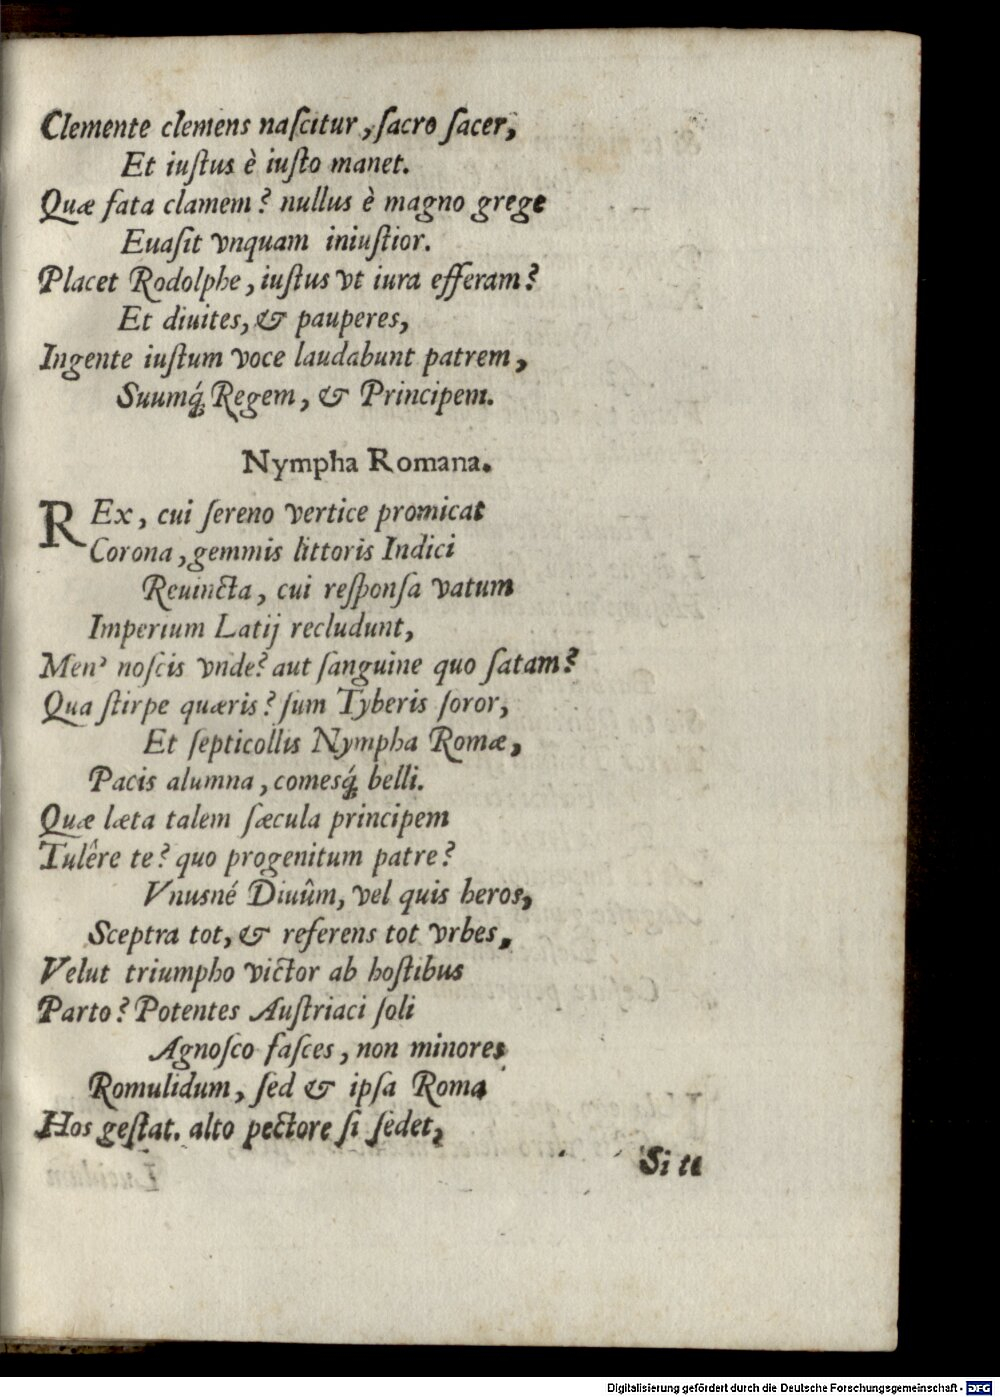 Clemente clemens naſcitur, ſacro ſacer,
Et iuſtus è iuſto manet.
Quæ fata clamem? nullus è magno grege
Euaſit vnquam iniuſtior.
Placet Rodolphe, iuſtus vt iura efferam?
Et diuites, & pauperes,
Ingente iuſtum voce laudabunt patrem,
Suumq́; Regem, & Principem.
Nympha Romana.
REx, cui ſereno vertice promicat
Corona, gemmis littoris Indici
Reuincta, cui reſponſa vatum
Imperium Latij recludunt,
Men' noſcis vnde? aut ſanguine quo ſatam?
Qua ſtirpe quæris? ſum Tyberis ſoror,
Et ſepticollis Nympha Romæ,
Pacis alumna, comesq́; belli.
Quæ læta talem ſæcula principem
Tulêre te? quo progenitum patre?
Vnusné Diuûm, vel quis heros,
Sceptra tot, & referens tot vrbes,
Velut triumpho victor ab hoſtibus
Parto? Potentes Auſtriaci ſoli
Agnoſco faſces, non minores
Romulidum, ſed & ipſa Roma
Hos geſtat. alto pectore ſi ſedet,
Si te
Digitalisierung gefördert durch die Deutsche Forschungsgemeinschaft - DFG